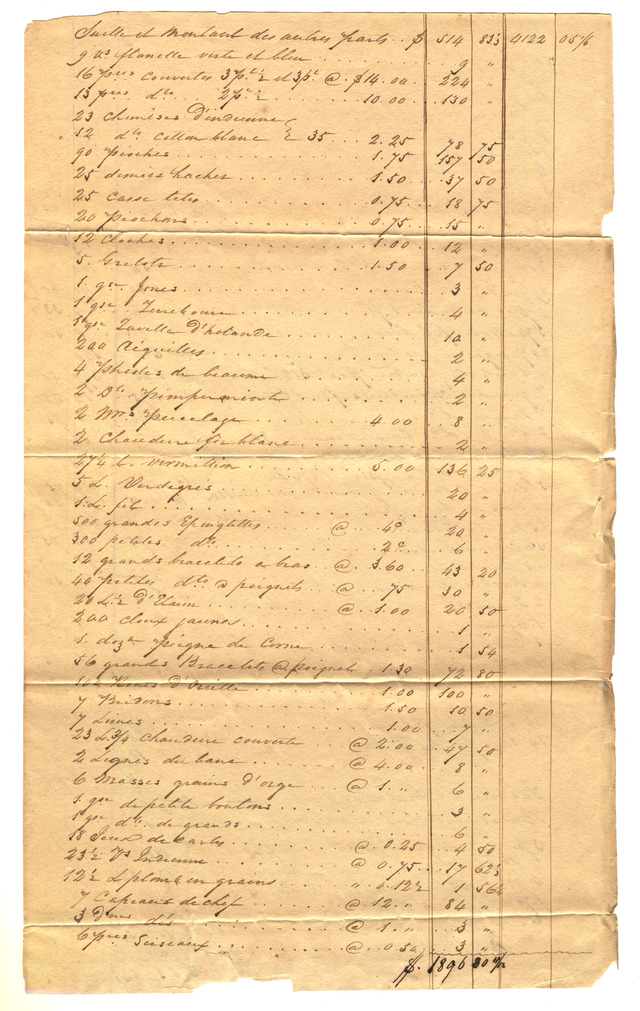 Suitte et montant des autres parts . $ 514 83⅓ 4122 05 ⅚
9 vs flanelle verte et bleu . . . 9 "
16 pres couvertes 3 pts ½ et 3 pt @ $14.00 . 224 "
13 pres dto 2 pt ½ 10.00 . 130 "
23 chemises d'indienne
12 dto cotton blanc } 35 . . 2.25 78 75
90 pioches . . . 1.75 157 50
25 demies haches . . . 1.50 37 50
25 Casse têtes . . . 0.75 18 75
20 piochons . . . 0.75 15 "
12 cloches . . . 1.00 12 "
5. Grelots . . . 1.50 7 50
1 gse Jones . . . 3 "
1 gse . . . 4 "
1 gse Tavelle d'holande . . . 10 "
200 Aiguilles . . . 2 "
4 de beaume . . . 4 "
2 Do pimpermente . . . 2 "
2 . . . 4.00 8 "
2 Chaudiere fer blanc . . . 2 "
27¼ L. vermillion . . . 5.00 136 25
5 L. Verdegres . . . 20 "
1. L. fil . . . 4 "
500 grandes Epinglettes @ 4c 20 "
300 petites dto . . . 2c 6 "
12 grands bracelets a bras . @ 3.60 43 20
40 petites dto @ poignets . @ 75 30 "
20 L ½ D'Etain . . . @ 1.00 20 50
200 cloux jaunes . . . 1 "
1. dozne peigne de Corne . . . 1 54
56 grands Bracelets @ poignet . 1.30 72 80
100 d'oreille . . . 1.00 100 "
7 Bridons . . . 1.50 10 50
7 Limes . . . 1.00 7 "
23 L 3/4 chaudiere couverte @ 2.00 47 50
2 Lignes du banc . . . @ 4.00 8 "
6 Masses grains d'orge . . . @ 1. " 6 "
1 gse de petite boutons . . . 3 "
1 gse dto de grands . . . 6 "
18 Jeux de Cartes @ 0.25 4 50
23½ Vs Indienne . . . @ 0.75 17 62½
12½ L plomb en grains " 0.12½ 1 56¼
7 Capeaux de chef . . . @ 12. " 84 "
3 dés . . . @ 1. " 3 "
6 pres Siseaux . . . @ 0.50 3 "
$. 1896 30